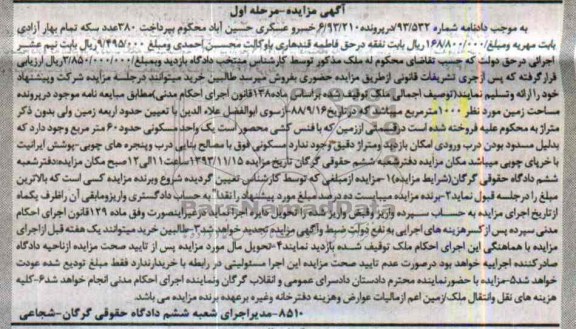 آگهی مزایده-مرحله اول
به موجب دادنامه شماره ۹۳/۵۳۲درپرونده۶/۹۳/۲۱۰خسرو عسکری حسین آباد محکوم بپرداخت ۳۸۰عدد سکه تمام بهار آزادی
بابت مهریه ومبلغ/۱۶۸/۸۰۰/۰۰۰ریال بابت نفقه درحق فاطمه قندهاری باوکالت محسن احمدی ومبلغ ۹/۴۹۵/۰۰۰ریال بابت نیم عشر
اجرائی درحق دولت که حسب تقاضای محکوم له ملک مذکور توسط کارشناس منتخب دادگاه بازدید وبمبلغ/۳/۸۵۰/۰۰۰/۰۰۰ریال ارزیابی
قرارگرفته که پس از جری تشریفات قانونی ازطریق مزایده حضوری بفروش میرسد طالبین خرید میتوانند درجلسه مزایده شرکت وپیشنهاد
خود را ارائه وتسلیم نمایند(توصیف اجمالی ملک توقیف شده براساس ماده۱۳۸قانون اجرای احکام مدنی)مطابق مبایعه نامه موجود درپرونده
مساحت زمین مورد نظر ۱۰۰۰مترمربع میباشد که درتاریخ۸۸/۹/۱۶ازسوی ابوالفضل علاء الدین با تعیین حدود اربعه زمین ولی بدون ذکر
متراژ به محکوم علیه فروخته شده است درقسمتی اززمین که با فنس کشی محصور است یک واحد مسکونی حدود۶۰متر مربع وجود دارد که
بدلیل مسدود بودن درب ورودی امکان بازدید ومتراژ دقیق وجود ندارد مسکونی فوق با مصالح بنایی درب وپنجره های چوبی-پوشش ایرانیت
با خرپای چوبی میباشد مکان مزایده دفترشعبه ششم حقوقی گرگان تاریخ مزایده ۱۳۹۳/۱۱/۱۵ساعت۱۱الی۱۲صبح مکان مزایده:دفترشعبه
ششم دادگاه حقوقی گرگان(شرایط مزایده)۱-مزایده ازمبلغی که توسط کارشناس تعیین گردیده شروع وبرنده مزایده کسی است که بالاترین
مبلغ را درجلسه قبول نماید۲-برنده مزایده میبایست ده درصد مبلغ مورد پیشنهاد را نقدا به حساب دادگستری واریزومابقی آن راظرف یکماه
ازتاریخ اجرای مزایده به حساب سپرده واریز وفیش واریز شده را تحویل دایره اجرا نماید درغیراینصورت وفق ماده ۱۲۹قانون اجرای احکام
مدنی سپرده پس از کسرهزینه های اجرایی به نفع دولت ضبط وآگهی مزایده تجدید خواهد شد۳-طالبین خرید میتوانند یک هفته قبل ازاجرای
مزایده با هماهنگی این اجرای احکام ملک توقیف شده بازدید نمایند۴-تحویل مال مورد مزایده پس از تایید صحت مزایده ازناحیه دادگاه
صادرکننده اجراییه خواهد بود درصورت عدم تایید صحت مزایده این اجرا مسئولیتی در رابطه با خریدارندارد فقط مبلغ تودیع شده عودت
خواهد شد۵-مزایده با حضورنماینده محترم دادستان دادسرای عمومی و انقلاب گرگان ونماینده اجرای احکام مدنی انجام خواهد شد۶-کلیه
هزینه های نقل وانتقال ملک/زمین اعم ازمالیات عوارض وهزینه دفترخانه وغیره برعهده برنده مزایده می باشد.
۸۵۱۰-مدیراجرای شعبه ششم دادگاه حقوقی گرگان-شجاعی